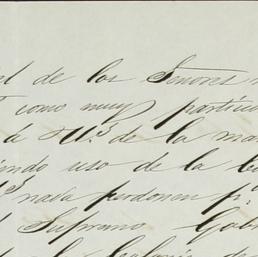 de los Señores
como muy particu
a V.S. de la ma
endo uso de la
nada perdonen p.r
Supremo Gobi